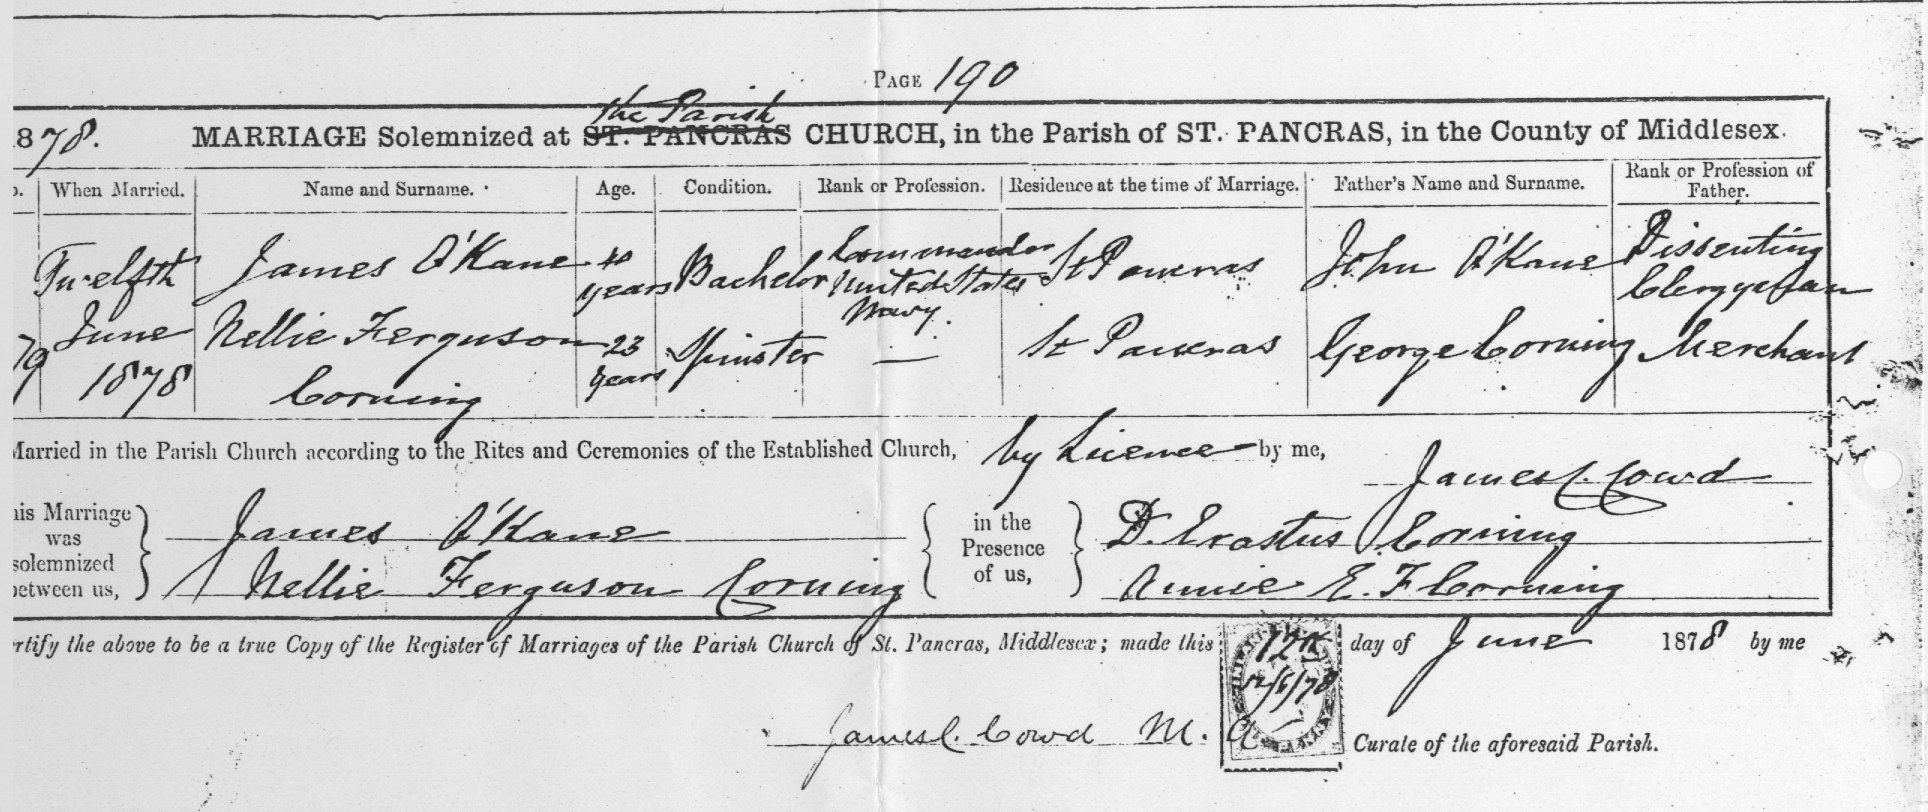 PAGE 190
the Parish
1878. MARRIAGE Solemnized at ST. PANCRAS CHURCH, in the Parish of ST. PANCRAS, in the County of Middlesex.
o. When Married. Name and Surname. Age. Condition. Rank or Profession. Residence at the time of Marriage. Father's Name and Surname. Rank or Profession of Father.
Twelfth James O'Kane 40 years Bachelor Commander United States Navy. St Pancras John O'Kane Dissenting Clergyman
79 June 1878 Nellie Ferguson Corning 23 years Spinster — St Pancras George Corning Merchant
Married in the Parish Church according to the Rites and Ceremonies of the Established Church, by Licence by me,
James C. Cowd
his Marriage was solemnized between us, James O'Kane in the Presence of us, D. Erastus Corning
Nellie Ferguson Corning Annie E. F Corning
ertify the above to be a true Copy of the Register of Marriages of the Parish Church of St. Pancras, Middlesex; made this 12th day of June 1878 by me
12/6/78
James C. Cowd M. A. Curate of the aforesaid Parish.